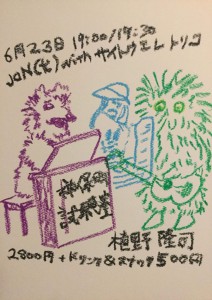 6月23日 19:00/19:30
JON(犬) with サイトウエレトリコ
神保町
試聴室
植野隆司
2800円+ドリンク&スナック500円